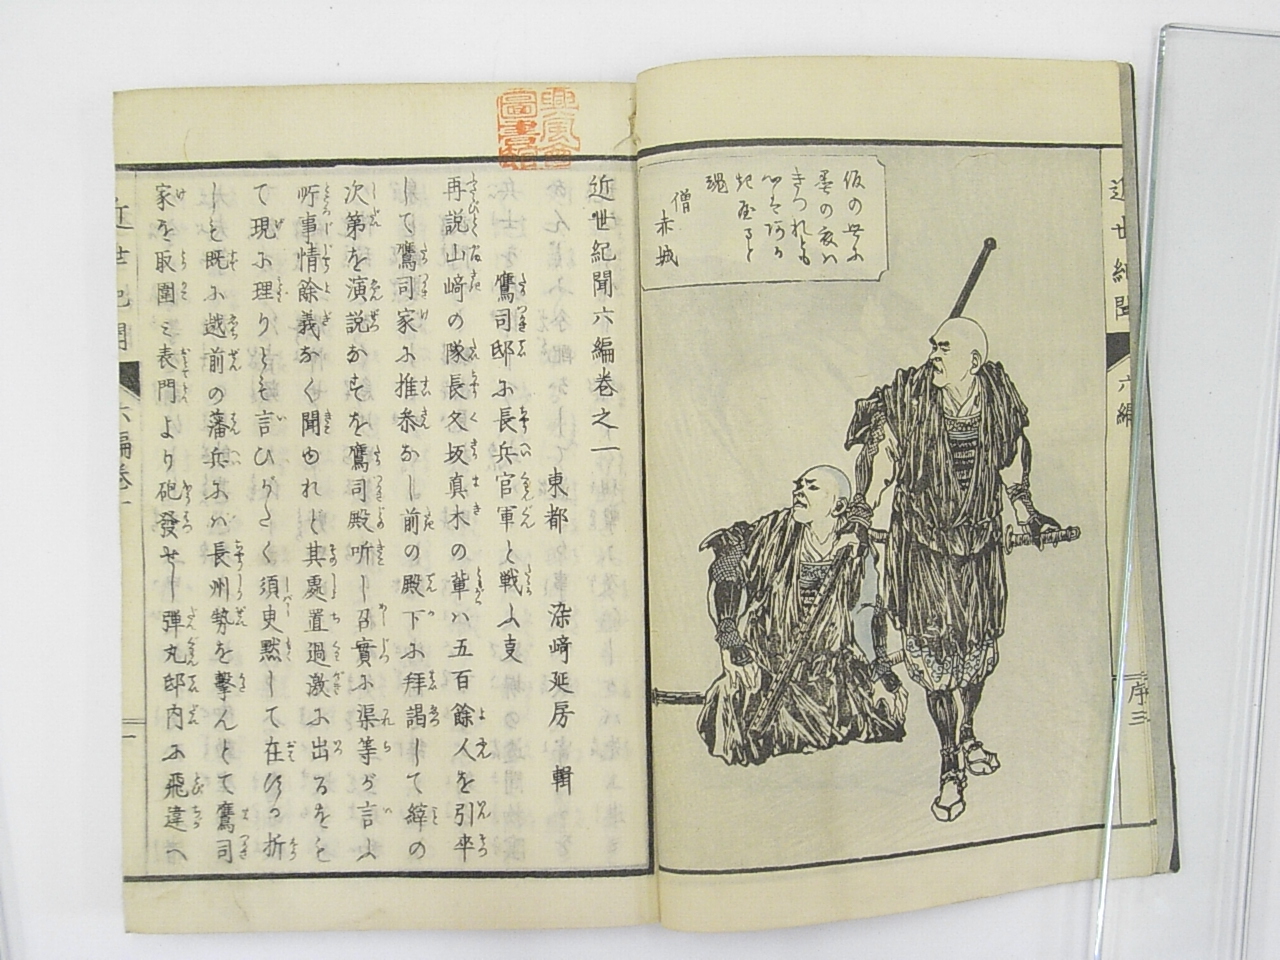 近世紀聞
六編
序三
僧 赤城
興風會
圖書館
近世紀聞六編巻之一
東都 染﨑延房 輯
鷹司邸に長兵官軍と戦ふ支
再説山﨑の隊長久坂真木の輩ハ五百餘人を引率
して鷹司家に推参なし前の殿下に拝謁して縡の
次第を演説なすを鷹司殿听し召實に渠等が言ふ
所事情餘義なく聞ゆれど其處置過激に出るをも
て現に理りとも言ひがたく須臾黙して在けつ折
しも既に越前の藩兵にハ長州勢を撃んとて鷹司
家を取圍み表門より砲發せし弾丸邸内に飛違へ
近世紀聞
六編巻一
一